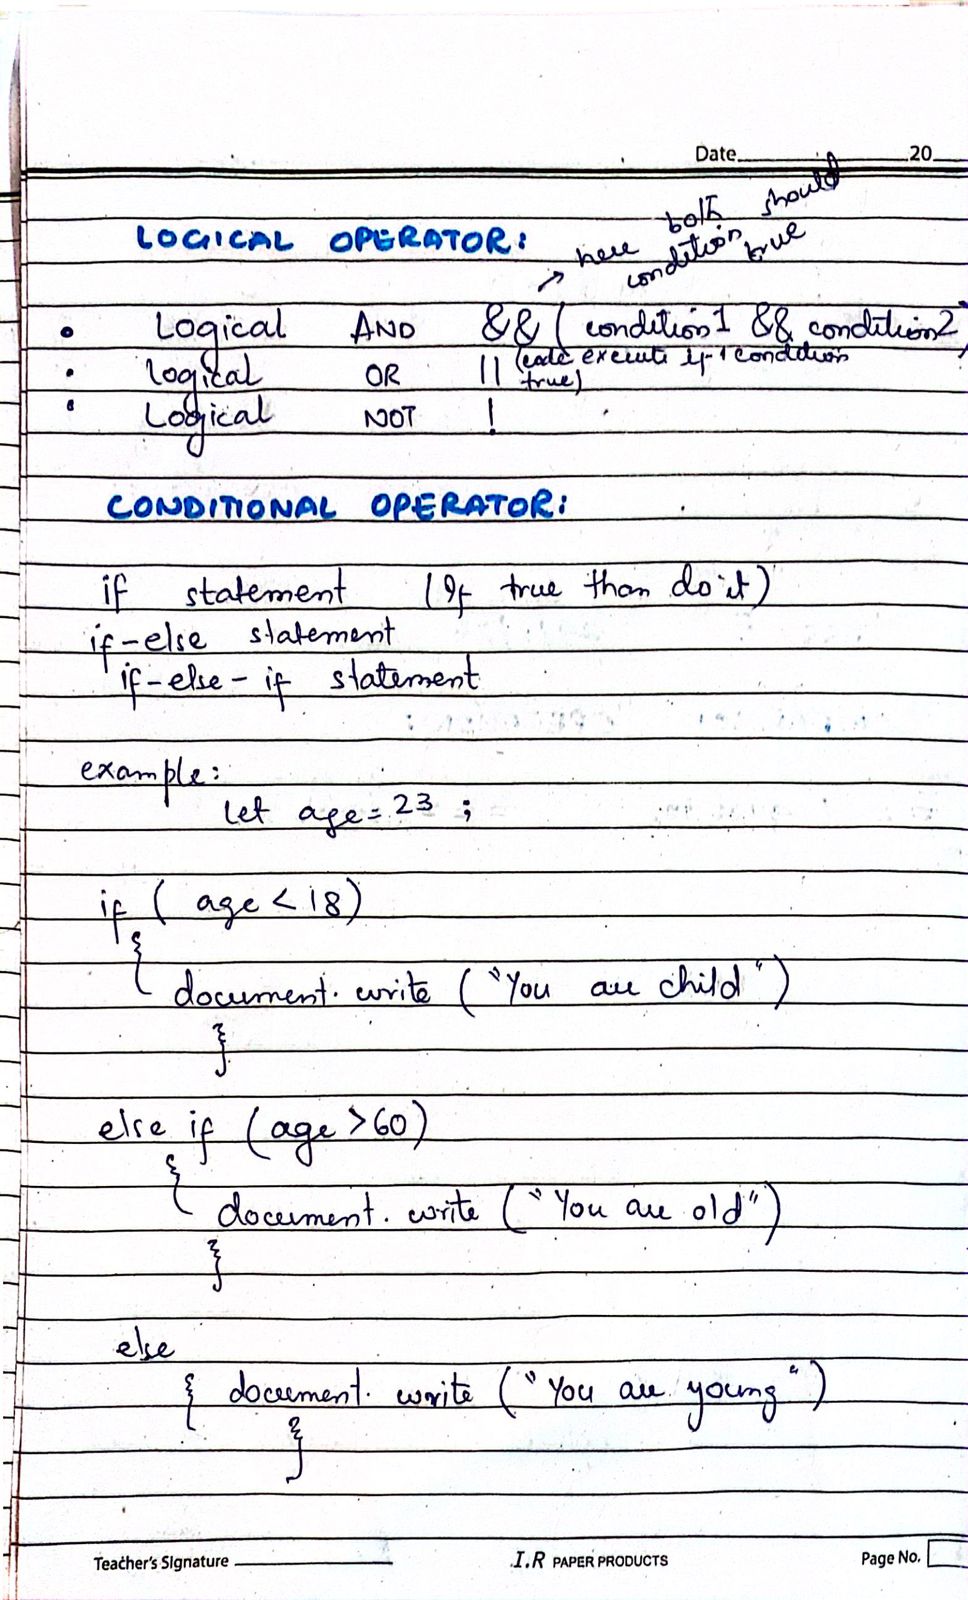 Date 20
LOGICAL OPERATOR:
→ here both should
condition true
• Logical AND && ( condition1 && condition2 )
• logical OR || (code execute if 1 condition
true)
• Logical NOT !
CONDITIONAL OPERATOR:
if statement (If true than do it)
if-else statement
if-else-if statement
example:
let age = 23 ;
if ( age < 18)
{
document. write ( "You are child" )
}
else if (age > 60)
{
document. write ( "You are old")
}
else
{ document. write ( "You are young" )
}
Teacher's Signature
I.R PAPER PRODUCTS
Page No.